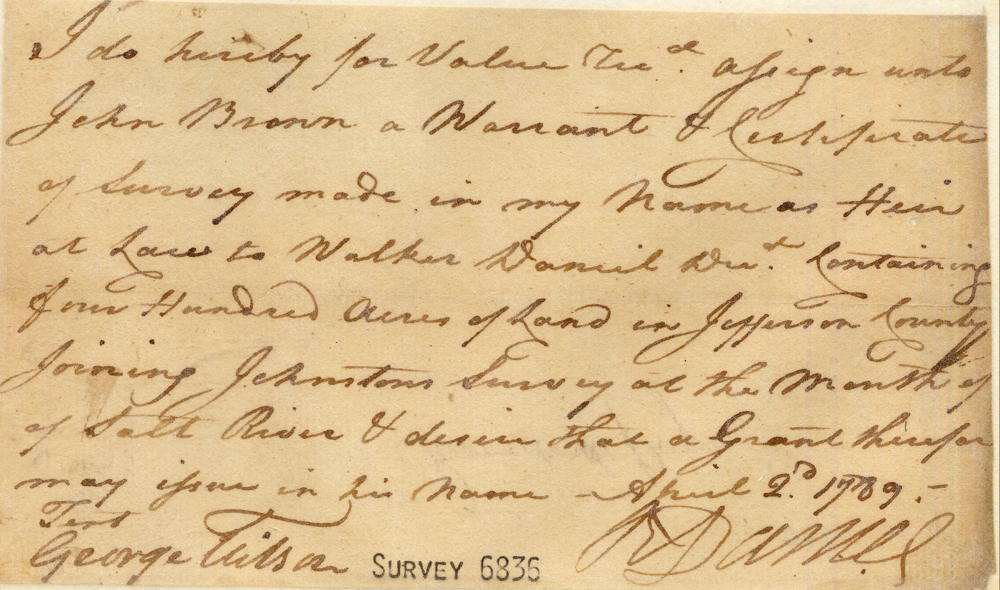 I do hereby for Value Rec.d assign unto
John Brown a Warrant & Certificate
of Survey made in my Name as Heir
at Law to Walker Daniel Dec.d Containing
four Hundred Acres of Land in Jefferson County
Joining Johnstons Survey at the Mouth of
of Salt River & desire that a Grant therefor
may issue in his Name - April 2.d 1789.-
Test
George Wilson R Daniel
SURVEY 6836